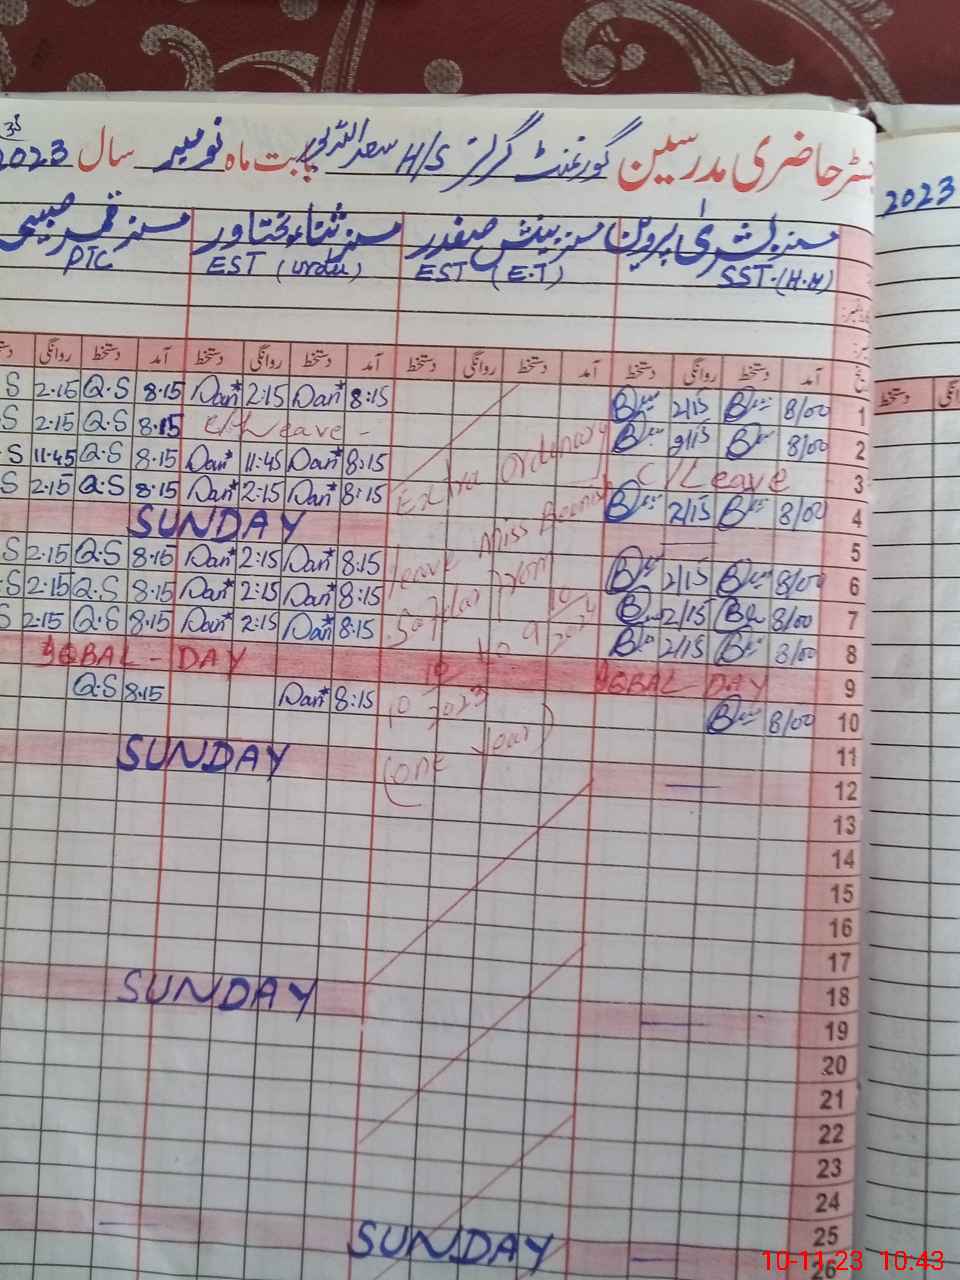 حاضری مدرسین گورنمنٹ گرلز H/S بابت ماہ نومبر سال 2023
2023
مسز بشریٰ پروین مسز بینش صفدر مسز ثناء بختاور مسز قمر
SST.(H.M) EST (E.T) EST (urdu) PTC
آمد دستخط روانگی دستخط آمد دستخط روانگی دستخط آمد دستخط روانگی دستخط آمد دستخط روانگی
دستخط
1 8/00 2/15 8:15 Dan* 2:15 Dan* 8:15 Q.S 2:15 S
2 8/00 2/15 C/Leave - 8:15 Q.S 2:15 S
3 C/Leave 8:15 Dan* 11:45 Dan* 8:15 Q.S 11:45 S
4 8/00 2/15 8:15 Dan* 2:15 Dan* 8:15 Q.S 2:15 S
5 SUNDAY
6 8/00 2/15 8:15 Dan* 2:15 Dan* 8:15 Q.S 2:15 S
7 8/00 2/15 8:15 Dan* 2:15 Dan* 8:15 Q.S 2:15 S
8 8/00 2/15 8:15 Dan* 2:15 Dan* 8:15 Q.S 2:15 S
9 IQBAL DAY IQBAL - DAY
10 8/00 8:15 Dan* 8:15 Q.S
Extra Ordenary
leave Miss Beenish
Safdar from
10 10 2023 to 9 10 2024
(one year)
11
12 SUNDAY
13
14
15
16
17
18
19 SUNDAY
20
21
22
23
24
25
26 SUNDAY
10-11-23 10:43